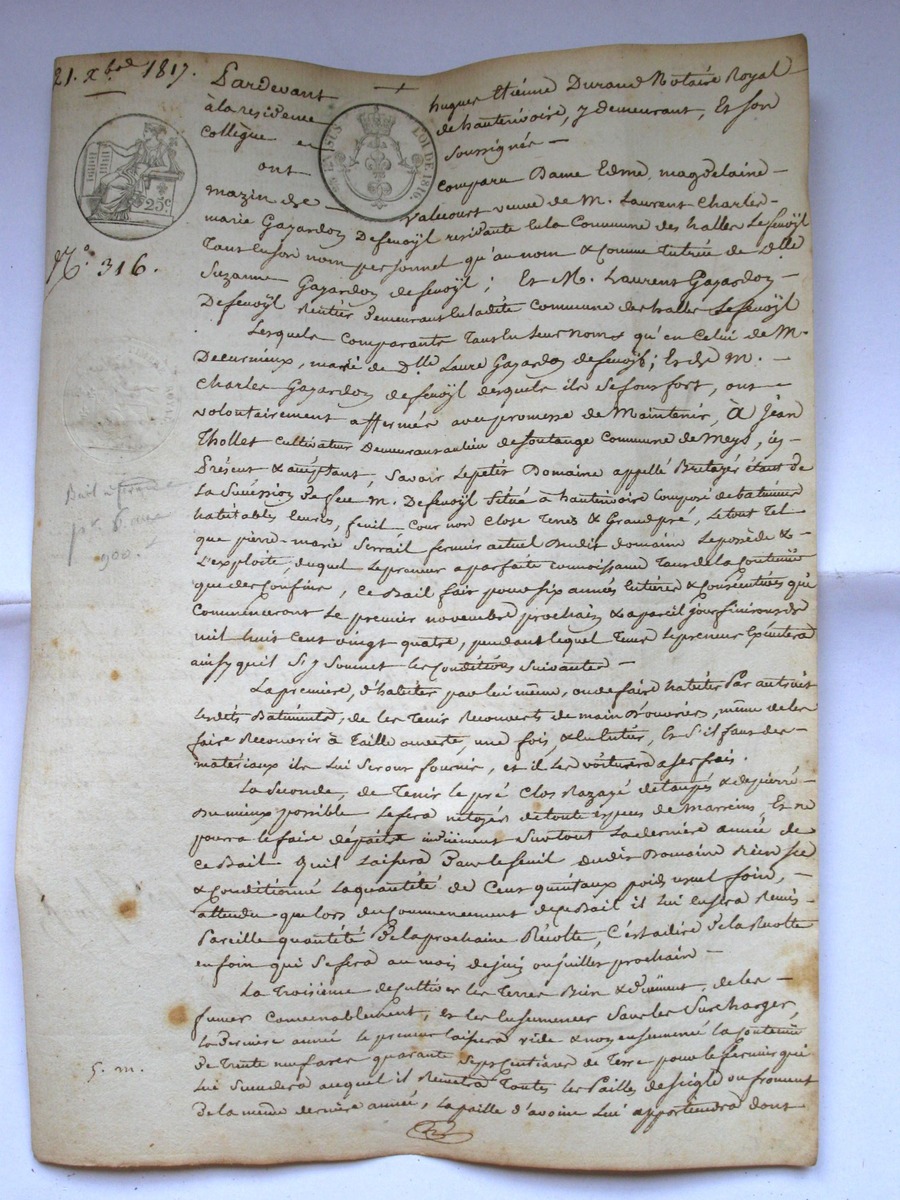 21. Xbre 1817.
Pardevant hugues Etienne Durand Notaire Royal
à la residence de hauterivoire, y demeurant, Et son
collegue en Soussignés —
ont Comparu Dame Edmé magdelaine
mazin de Valcourt veuve de M. Laurent Charles
marie Gayardon De fenoÿl residante en la Commune des halles Le fenoÿl
Tant en son nom personnel qu'au nom & Comme tutrice de Dlle
Suzanne Gayardon de fenoÿl ; Et M. Laurent Gayardon —
De fenoÿl Rentier Demeurant en ladite Commune des halles Le fenoÿl
Lesquels Comparants Tant en leurs Noms qu'en Celui de M.
Decurnieux, marié de Dlle Laure Gayardon de fenoÿl ; Et de M. —
Charles Gayardon de fenoÿl desquels ils se font fort, ont —
volontairement affermés avec promesse de Maintenir, à Jean
Thollet Cultivateur Demeurant au lieu de Commune de Meys, icy
Présent & acceptant, Savoir Le petit Domaine appellé étant de
La Succession De feu M. De fenoÿl Situé à hauterivoire Composé de batimens
habitables Cour non Close Terres & Grand pré, Le tout Tel
que pierre-marie Serrail fermier actuel Dudit domaine Le possède &
L'exploite, duquel Le preneur a parfaite Connoissance Tant de la Contenue
que des Confins, Ce Bail fait pour six années Entières & Consécutives qui
Commenceront Le premier novembre prochain & a pareil jour finiront de
mil huit Cent vingt quatre, pendant lequel Tems Le preneur Exécutera
ainsy qu'il S'y Soumet les Conditions Suivantes —
La première, d'habiter par lui même, ou de faire habiter Par autruit
Lesdits Batiments, de les Tenir Recouverts de main D'ouvriers, même de les
faire Recouvrir à Taille ouverte, une fois, & en Entier, Et S'il faut des —
matériaux ils Lui Seront fournis, et il Les voiturera a ses frais.
La Seconde, de Tenir Le pré Clos Razagé de taupes & de pierres
Du mieux possible Le fera netoyer de toute espèces de Et ne
pourra Le faire dépaitre indûment Surtout La dernière année de
Ce Bail Qu'il Laissera Dans Le fenil dudit Domaine Bien Sec
& Conditionné La quantité de Cent quintaux poids usuel foin, —
attendu que lors du Commencement de ce Bail il Lui en sera Remis
Pareille quantité De la prochaine Récolte, C'est a dire De la Récolte
en foin qui Se fera au mois de juin ou juillet prochain —
La Troisième de Cultiver Les Terres Bien & Dûement, de les —
fumer Convenablement, et les Ensemencer Sans les Surcharger,
La dernière année le preneur Laissera vide & non ensemencé La Contenue
De Trente neuf ares quarante Sept Centiares de Terre pour le fermier qui
Lui Succedera auquel il Remettra Toutes les Pailles de seigle ou froment
De la même dernière année, La paille d'avoine Lui appartiendra dont
25c
LOI DE 1816.
No 316.
900.